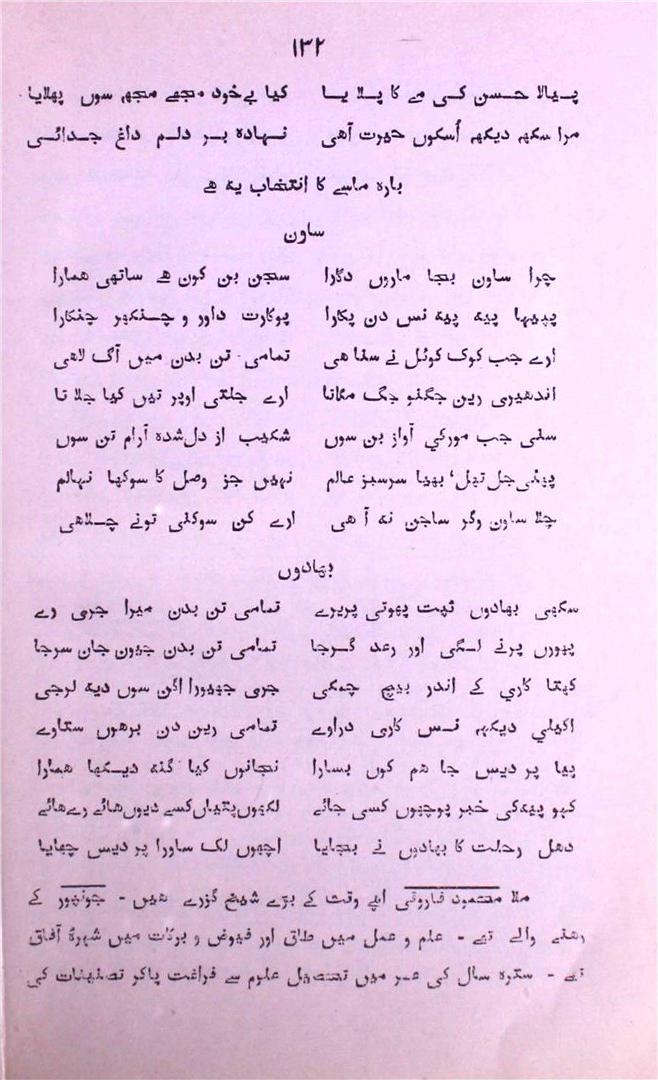 ۱۳۲
پیالا حسن کی مے کا پلایا کیا بےخود مجھے مجھ سوں بھلایا
مرا سکھ دیکھ اُسکوں حیرت آهی نہادہ بر دلم داغ جدائی
بارہ ماسے کا انتخاب یہ هے
ساون
چڑا ساون بجا ماروں دگارا سجن بن کون هے ساتھی همارا
پپیہا پیہ پیہ نس دن پکارا پوکارت داور و چنکھر چنکارا
ارے جب کوک کوئل نے سنا هی تمامی تن بدن میں آگ لاهی
اندھیری رین جگنو جگ مگاتا ارے جلتی اوپر تیں کیا جلاتا
سنی جب مورکي آواز بن سوں شکیب از دل شدہ آرام تن سوں
بھئی جل تھل، بھیا سرسبز عالم نہیں جز وصل کا سوکھا نہالم
چلا ساون وگر ساجن نہ آهی ارے کن سوکنی تونے چلاهی
بھادوں
سکھی بھادوں نپت پھوتی پریرے تمامی تن بدن میرا جری رے
پھورں پرنے لگی اور رعد گرجا تمامی تن بدن جیون جان سرجا
گھتا کاري کے اندر بیچ چمکی جری جیورا اگن سوں دیہ لرجی
اکیلي دیکھ نس کاری دراوے تمامی رین دن برهوں ستاوے
پیا پردیس جا هم کوں بسارا نجانوں کیا گنہ دیکھا همارا
کہو پیہ کی خبر پوچھوں کسی جائے لکھوں پتیاں کسے دیوں هائے رے هائے
دهل رحلت کا بھادوں نے بجایا اچھوں لک ساورا پردیس چھایا
ملا محمود فاروقی اپنے وقت کے بڑے شیخ گزرے هیں - جونپور کے
رهنے والے تھے - علم و عمل میں طاق اور فیوض و برکات میں شہرۂ آفاق
تھے - سترہ سال کی عمر میں تحصیل علوم سے فراغت پاکر تصنیفات کی